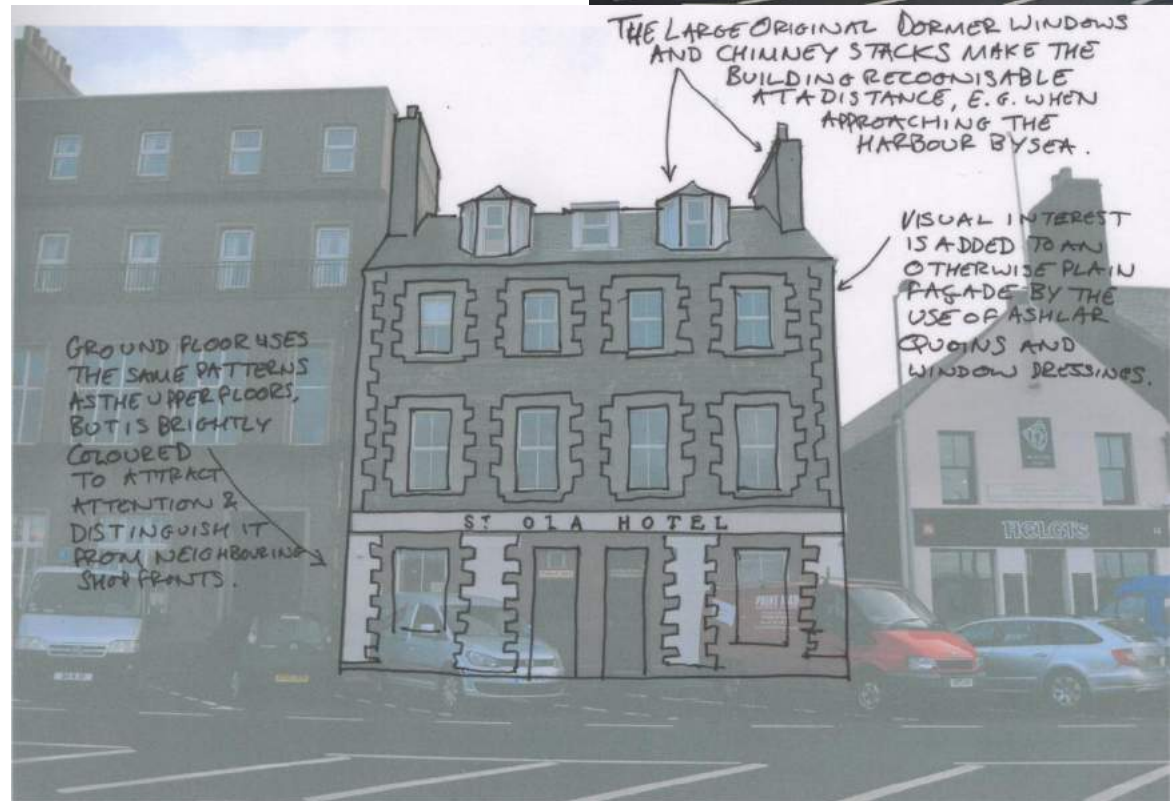 THE LARGE ORIGINAL DORMER WINDOWS
AND CHIMNEY STACKS MAKE THE
BUILDING RECOGNISABLE
AT A DISTANCE, E.G. WHEN
APPROACHING THE
HARBOUR BY SEA.
VISUAL INTEREST
IS ADDED TO AN
OTHERWISE PLAIN
FAÇADE BY THE
USE OF ASHLAR
QUOINS AND
WINDOW DRESSINGS.
GROUND FLOOR USES
THE SAME PATTERNS
AS THE UPPER FLOORS,
BUT IS BRIGHTLY
COLOURED
TO ATTRACT
ATTENTION &
DISTINGUISH IT
FROM NEIGHBOURING
SHOP FRONTS.
ST OLA HOTEL
HELGIS